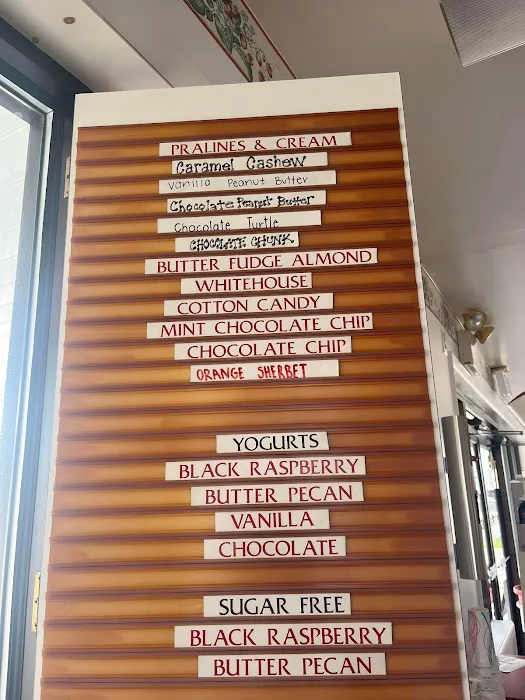 PRALINES & CREAM
Caramel Cashew
Vanilla Peanut Butter
Chocolate Peanut Butter
Chocolate Turtle
CHOCOLATE CHUNK
BUTTER FUDGE ALMOND
WHITEHOUSE
COTTON CANDY
MINT CHOCOLATE CHIP
CHOCOLATE CHIP
ORANGE SHERBET
YOGURTS
BLACK RASPBERRY
BUTTER PECAN
VANILLA
CHOCOLATE
SUGAR FREE
BLACK RASPBERRY
BUTTER PECAN